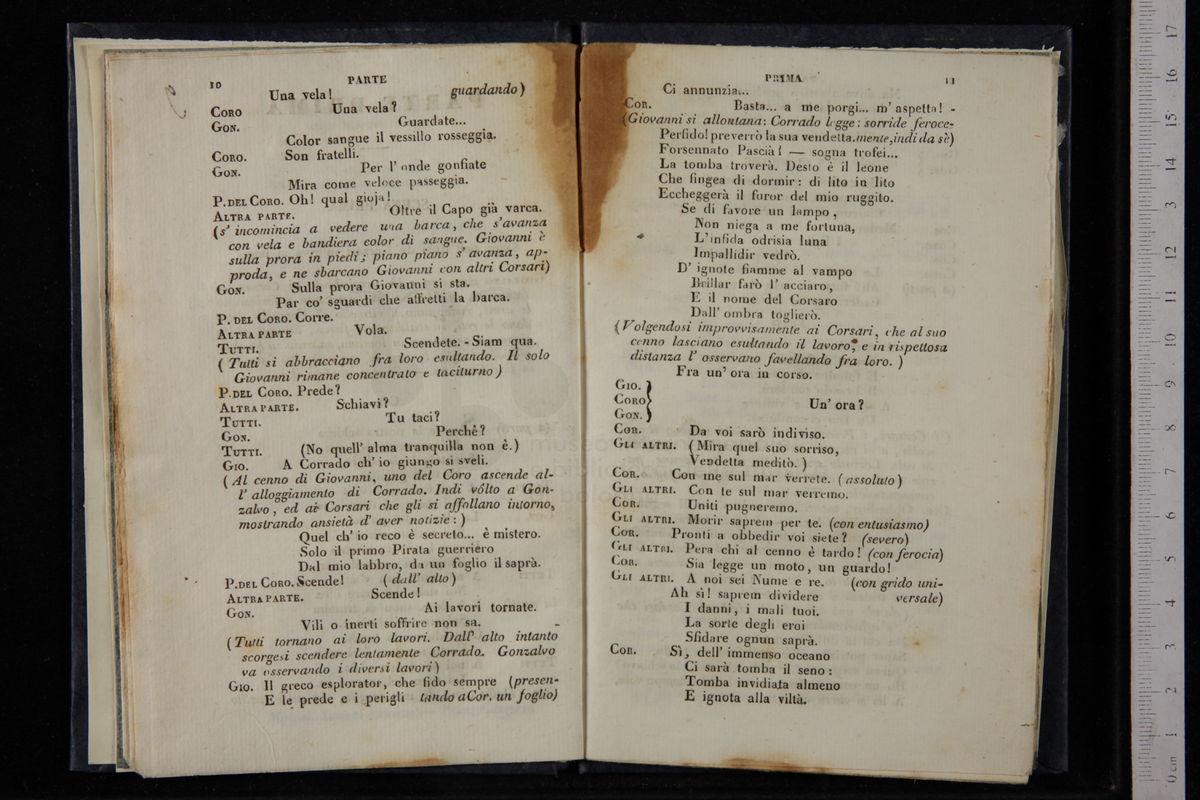 10
PARTE
Una vela! guardando)
CORO Una vela?
GON. Guardate...
Color sangue il vessillo rosseggia.
CORO. Son fratelli.
GON. Per l' onde gonfiate
Mira come veloce passeggia.
P. DEL CORO. Oh! qual gioja!
ALTRA PARTE. Oltre il Capo già varca.
(s' incomincia a vedere una barca, che s'avanza
con vela e bandiera color di sangue. Giovanni è
sulla prora in piedi; piano piano s' avanza, ap-
proda, e ne sbarcano Giovanni con altri Corsari)
GON. Sulla prora Giovanni si sta.
Par co' sguardi che affretti la barca.
P. DEL CORO. Corre.
ALTRA PARTE Vola.
TUTTI. Scendete. - Siam qua.
( Tutti si abbracciano fra loro esultando. Il solo
Giovanni rimane concentrato e taciturno )
P. DEL CORO. Prede?
ALTRA PARTE. Schiavi?
TUTTI. Tu taci?
GON. Perchè?
TUTTI. (No quell' alma tranquilla non è.)
GIO. A Corrado ch' io giungo si sveli.
( Al cenno di Giovanni, uno del Coro ascende al-
l' alloggiamento di Corrado. Indi vôlto a Gon-
zalvo, ed ai Corsari che gli si affollano intorno,
mostrando ansietà d' aver notizie: )
Quel ch' io reco è secreto... è mistero.
Solo il primo Pirata guerriero
Dal mio labbro, da un foglio il saprà.
P. DEL CORO. Scende! ( dall' alto )
ALTRA PARTE. Scende!
GON. Ai lavori tornate.
Vili o inerti soffrire non sa.
( Tutti tornano ai loro lavori. Dall' alto intanto
scorgesi scendere lentamente Corrado. Gonzalvo
va osservando i diversi lavori )
GIO. Il greco esplorator, che fido sempre (presen-
E le prede e i perigli tando a Cor. un foglio)
PRIMA
11
Ci annunzia...
COR. Basta... a me porgi... m' aspetta! -
(Giovanni si allontana: Corrado legge: sorride feroce-
Perfido! preverrò la sua vendetta. mente, indi da sè)
Forsennato Pascià! — sogna trofei...
La tomba troverà. Desto è il leone
Che fingea di dormir: di lito in lito
Eccheggerà il furor del mio ruggito.
Se di favore un lampo,
Non niega a me fortuna,
L'infida odrisia luna
Impallidir vedrò.
D' ignote fiamme al vampo
Brillar farò l' acciaro,
E il nome del Corsaro
Dall' ombra toglierò.
(Volgendosi improvvisamente ai Corsari, che al suo
cenno lasciano esultando il lavoro, e in rispettosa
distanza l' osservano favellando fra loro. )
Fra un' ora in corso.
GIO.
CORO
GON. Un' ora?
COR. Da voi sarò indiviso.
GLI ALTRI. (Mira quel suo sorriso,
Vendetta meditò. )
COR. Con me sul mar verrete. (assoluto)
GLI ALTRI. Con te sul mar verremo.
COR. Uniti pugneremo.
GLI ALTRI. Morir saprem per te. (con entusiasmo)
COR. Pronti a obbedir voi siete? (severo)
GLI ALTRI. Pera chi al cenno è tardo! (con ferocia)
COR. Sia legge un moto, un guardo!
GLI ALTRI. A noi sei Nume e re. (con grido uni-
Ah sì! saprem dividere versale)
I danni, i mali tuoi.
La sorte degli eroi
Sfidare ognun saprà.
COR. Sì, dell' immenso oceano
Ci sarà tomba il seno:
Tomba invidiata almeno
E ignota alla viltà.
0 cm 1 2 3 4 5 6 7 8 9 10 11 12 13 14 15 16 17